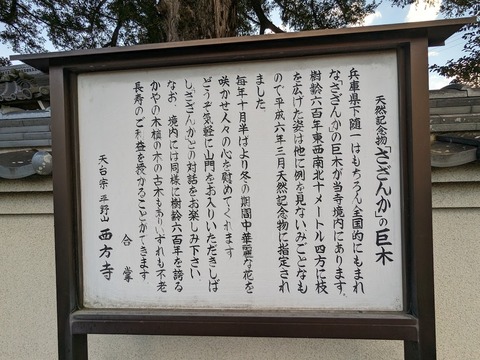 天然記念物「さざんか」の巨木
兵庫県下随一はもちろん全国的にもまれ
な「さざんか」の巨木が当寺境内にあります。
樹齢六百年東西南北十メートル四方に枝
を広げた姿は他に例を見ないみごとなもの
ので平成六年三月天然記念物に指定され
ました。
毎年十月半ばより冬の期間中華麗な花を
咲かせ人々の心を慰めてくれます
どうぞ気軽に山門をお入りいただきしば
し「さざんか」との対話をお楽しみ下さい。
なお、境内には同様に樹齢六百年を誇る
かやの木槙の木の古木もありいずれも不老
長寿のご利益を授かることができます
合掌
天台宗 平野山 西方寺